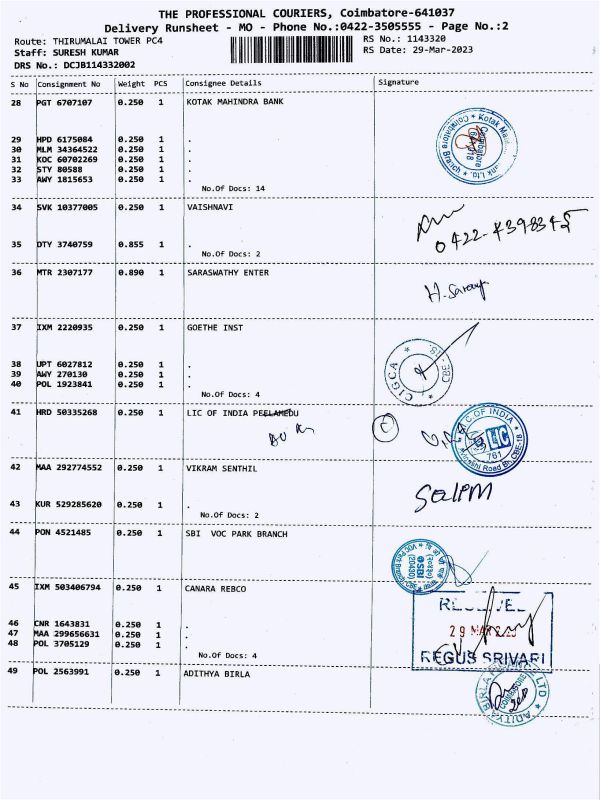 THE PROFESSIONAL COURIERS, Coimbatore-641037
Delivery Runsheet - MO - Phone No.:0422-3505555 - Page No.:2
Route: THIRUMALAI TOWER PC4
RS No.: 1143320
Staff: SURESH KUMAR
RS Date: 29-Mar-2023
DRS No.: DCJB114332002
S No Consignment No Weight PCS Consignee Details Signature
28 PGT 6707107 0.250 1 KOTAK MAHINDRA BANK
29 HPD 6175084 0.250 1 .
30 MLM 34364522 0.250 1 .
31 KOC 60702269 0.250 1 .
32 STY 80588 0.250 1 .
33 AWY 1815653 0.250 1 .
No.Of Docs: 14
34 SVK 10377005 0.250 1 VAISHNAVI
35 DTY 3740759 0.855 1 .
No.Of Docs: 2
36 MTR 2307177 0.890 1 SARASWATHY ENTER
37 IXM 2220935 0.250 1 GOETHE INST
CIGCA * CBE-18 *
38 UPT 6027812 0.250 1 .
39 AWY 270130 0.250 1 .
40 POL 1923841 0.250 1 .
No.Of Docs: 4
41 HRD 50335268 0.250 1 LIC OF INDIA PEELAMEDU
L.I.C. OF INDIA
LIC
761
42 MAA 292774552 0.250 1 VIKRAM SENTHIL
43 KUR 529285620 0.250 1 .
No.Of Docs: 2
44 PON 4521485 0.250 1 SBI VOC PARK BRANCH
45 IXM 503406794 0.250 1 CANARA REBCO
46 CNR 1643831 0.250 1 .
47 MAA 299656631 0.250 1 .
48 POL 3705129 0.250 1 .
No.Of Docs: 4
29 MAR
REGUS SRIVARI
49 POL 2563991 0.250 1 ADITHYA BIRLA